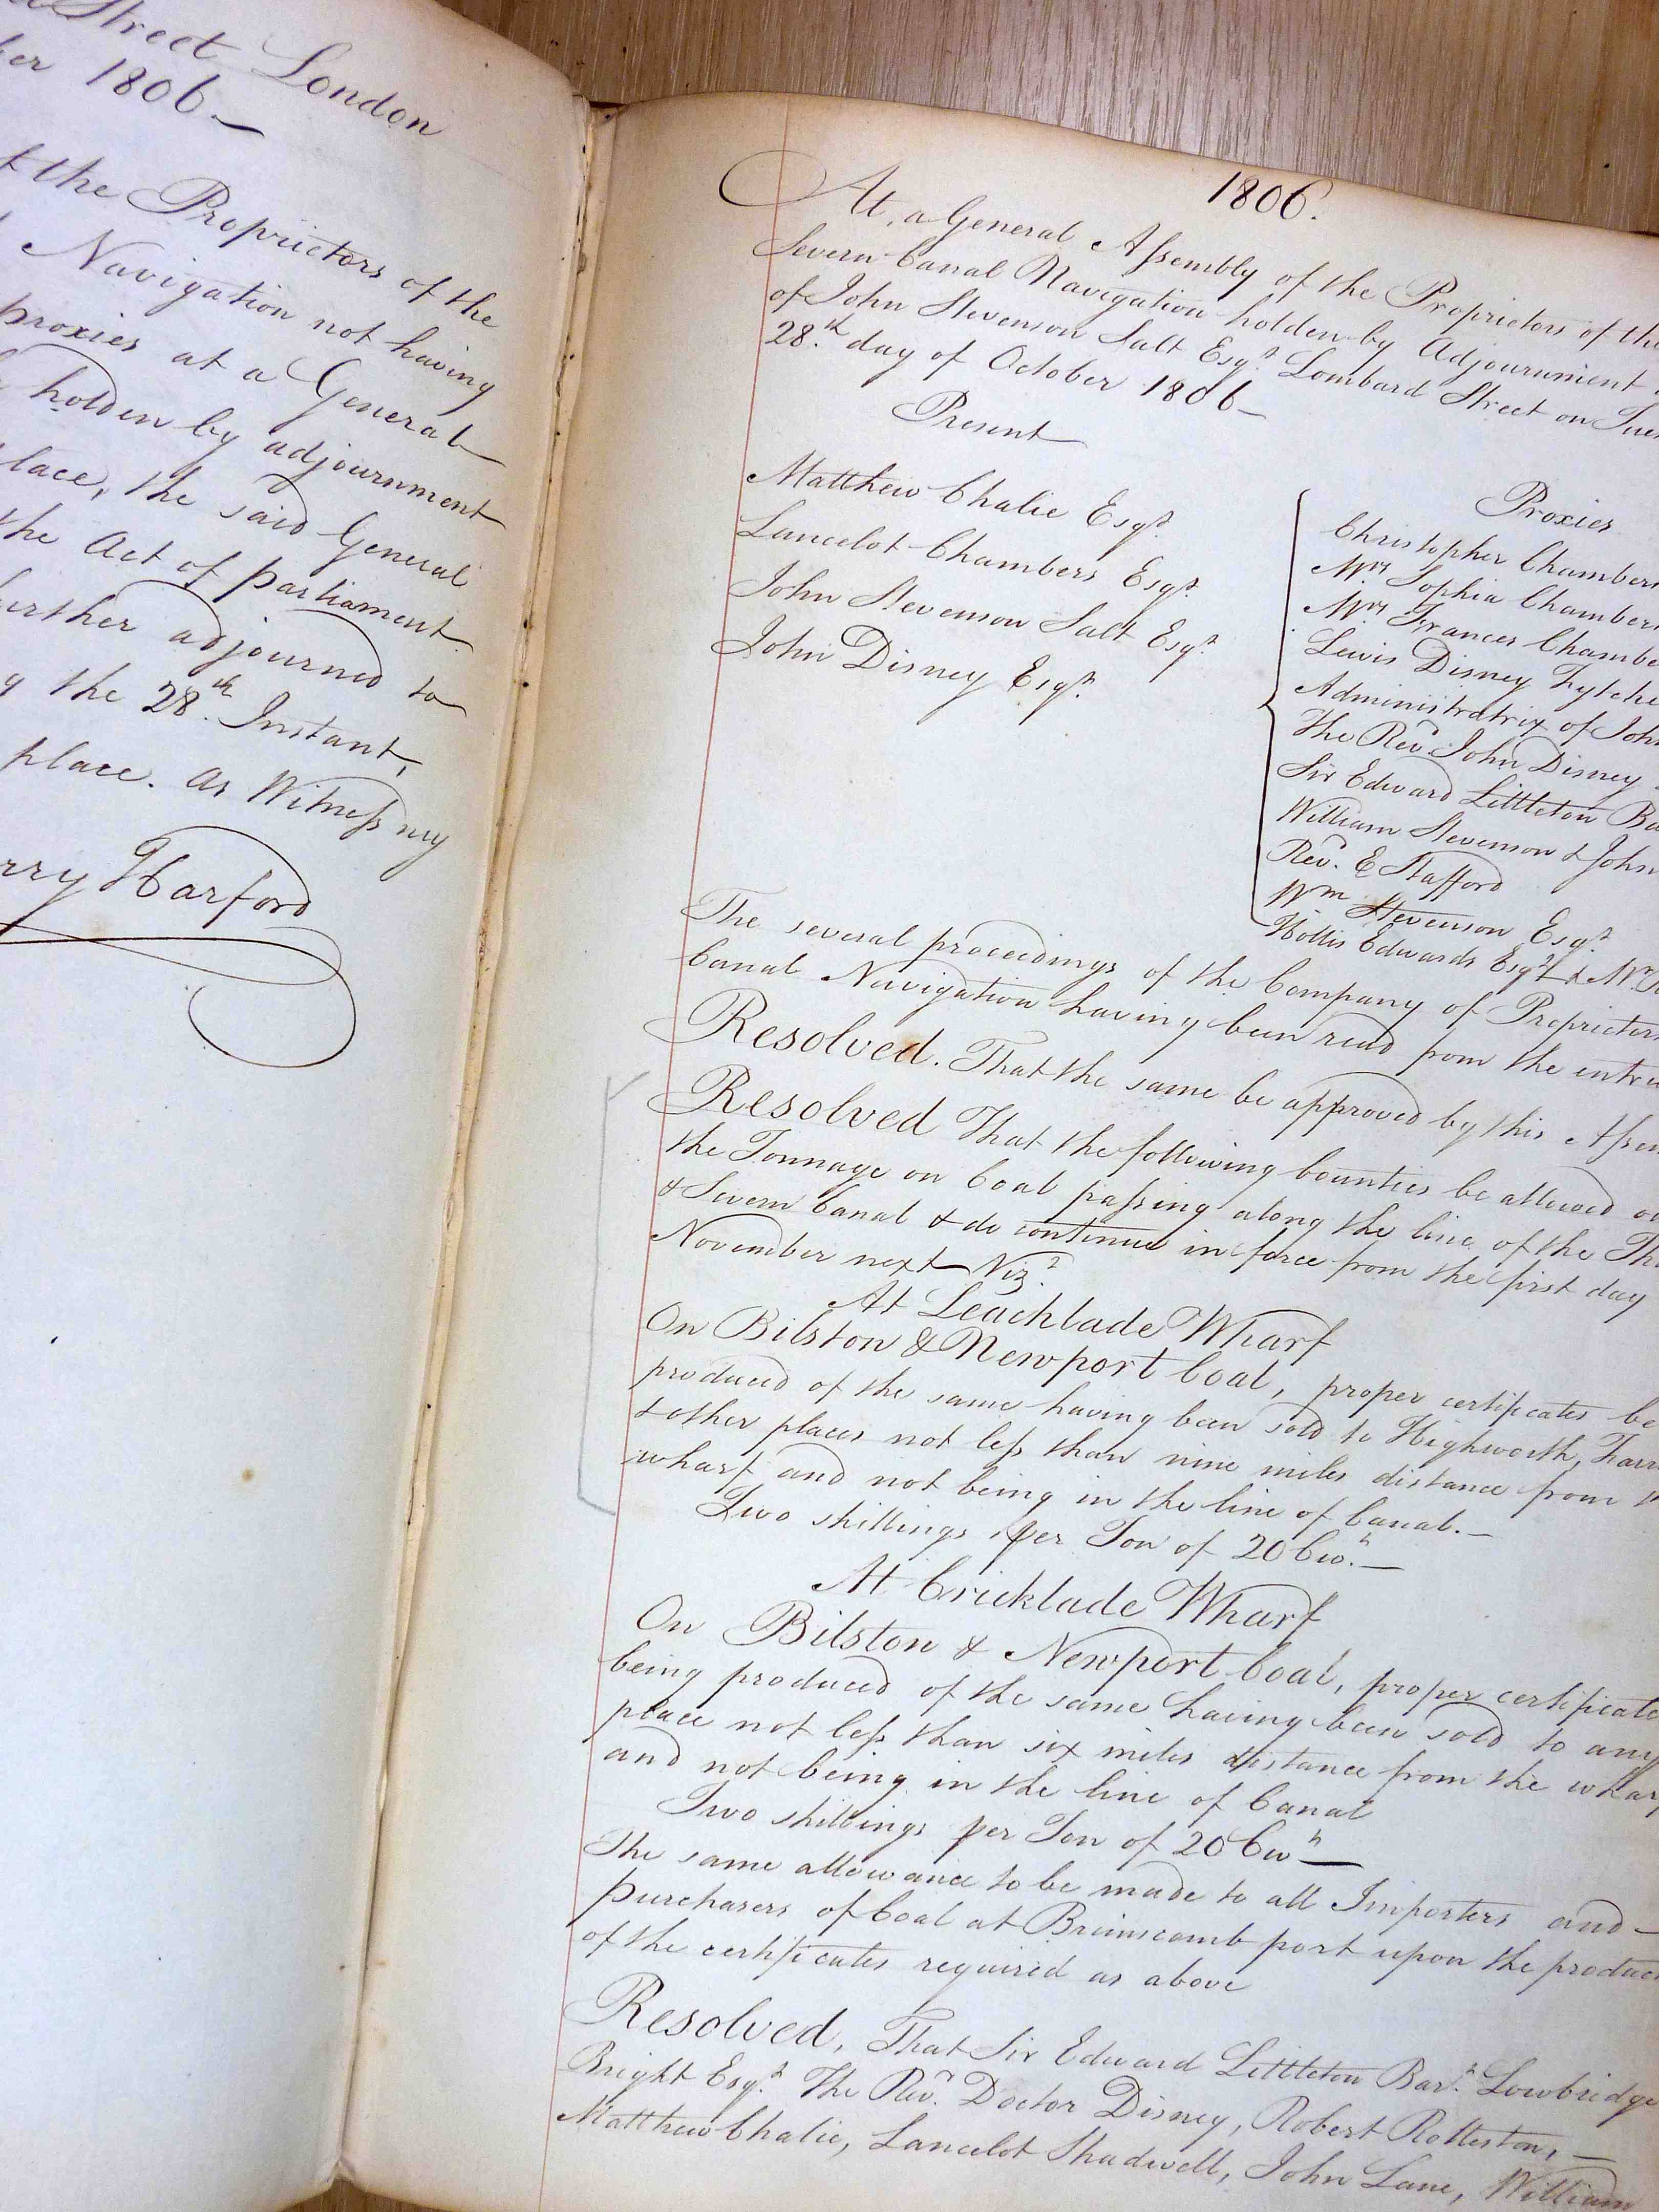 Street London
1806 —
the Proprietors of the
Navigation not having
proxies at a General
holden by adjournment
the said General
the Act of parliament
further adjourned to
the 28.th Instant,
place. As Witneſs my
Harford
1806.
At a General Aſsembly of the Proprietors of the
Severn Canal Navigation holden by Adjournment
of John Stevenson Salt Esqr. Lombard Street on
28.th day of October 1806 —
Present
Matthew Chalie Esqr.
Lancelot Chambers Esqr.
John Stevenson Salt Esqr.
John Disney Esqr.
Proxies
Christopher Chambers
Mrs Sophia Chambers
Mrs Frances
Lewis Disney Fytche
Administratrix of John
The Revd. John Disney
Sir Edward Littleton
William Stevenson & John
Revd. E Stafford
Wm Stevenson Esqr.
Hollis Edwards Esqr. & Mr.
The several proceedings of the Company of Proprietors
Canal Navigation having been read from the
Resolved. That the same be approved by this
Resolved That the following bounties be allowed
the Tonnage on Coal paſsing along the line of the
& Severn Canal & do continue in force from the first day
November next Vizt.
At Leachlade Wharf
On Bilston & Newport Coal, proper certificates
produced of the same having been sold to Highworth,
& other places not leſs than nine miles distance from
wharf and not being in the line of Canal. —
Two shillings per Ton of 20 Cwt. —
At Cricklade Wharf
On Bilston & Newport Coal, proper certificate
being produced of the same having been sold to any
place not leſs than six miles distance from the
and not being in the line of Canal
Two shillings per Ton of 20 Cwt —
The same allowance to be made to all Importers and —
purchasers of Coal at Brimscomb port upon the
of the certificates required as above
Resolved, That Sir Edward Littleton Bart. Lowbridge
Bright Esqr. The Revd. Doctor Disney, Robert Rolleston, —
Matthew Chalie, Lancelot Shadwell, John Lane, William